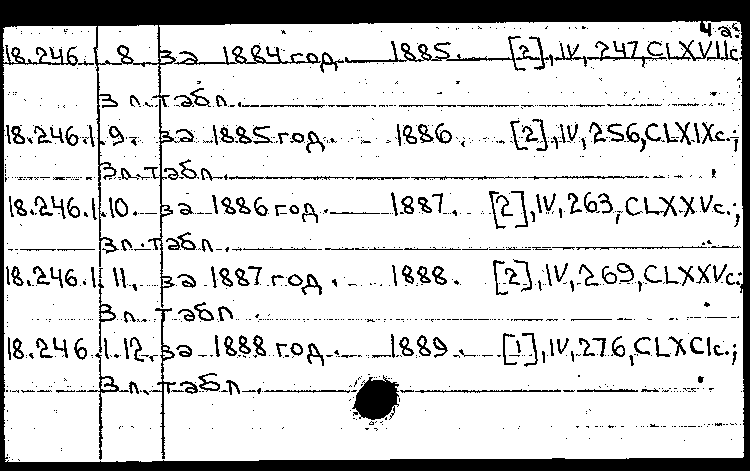 4 а.
18.246.1.8. за 1884 год. 1885. [2], IV, 247, CLXVII с.
3 л. табл.
18.246.1.9. за 1885 год. 1886. [2], IV, 256, CLXIX с.;
3 л. табл.
18.246.1.10. за 1886 год. 1887. [2], IV, 263, CLXXV с.;
3 л. табл.
18.246.1.11. за 1887 год. 1888. [2], IV, 269, CLXXV с.;
3 л. табл.
18.246.1.12. за 1888 год. 1889. [1], IV, 276, CLXCI с.;
3 л. табл.